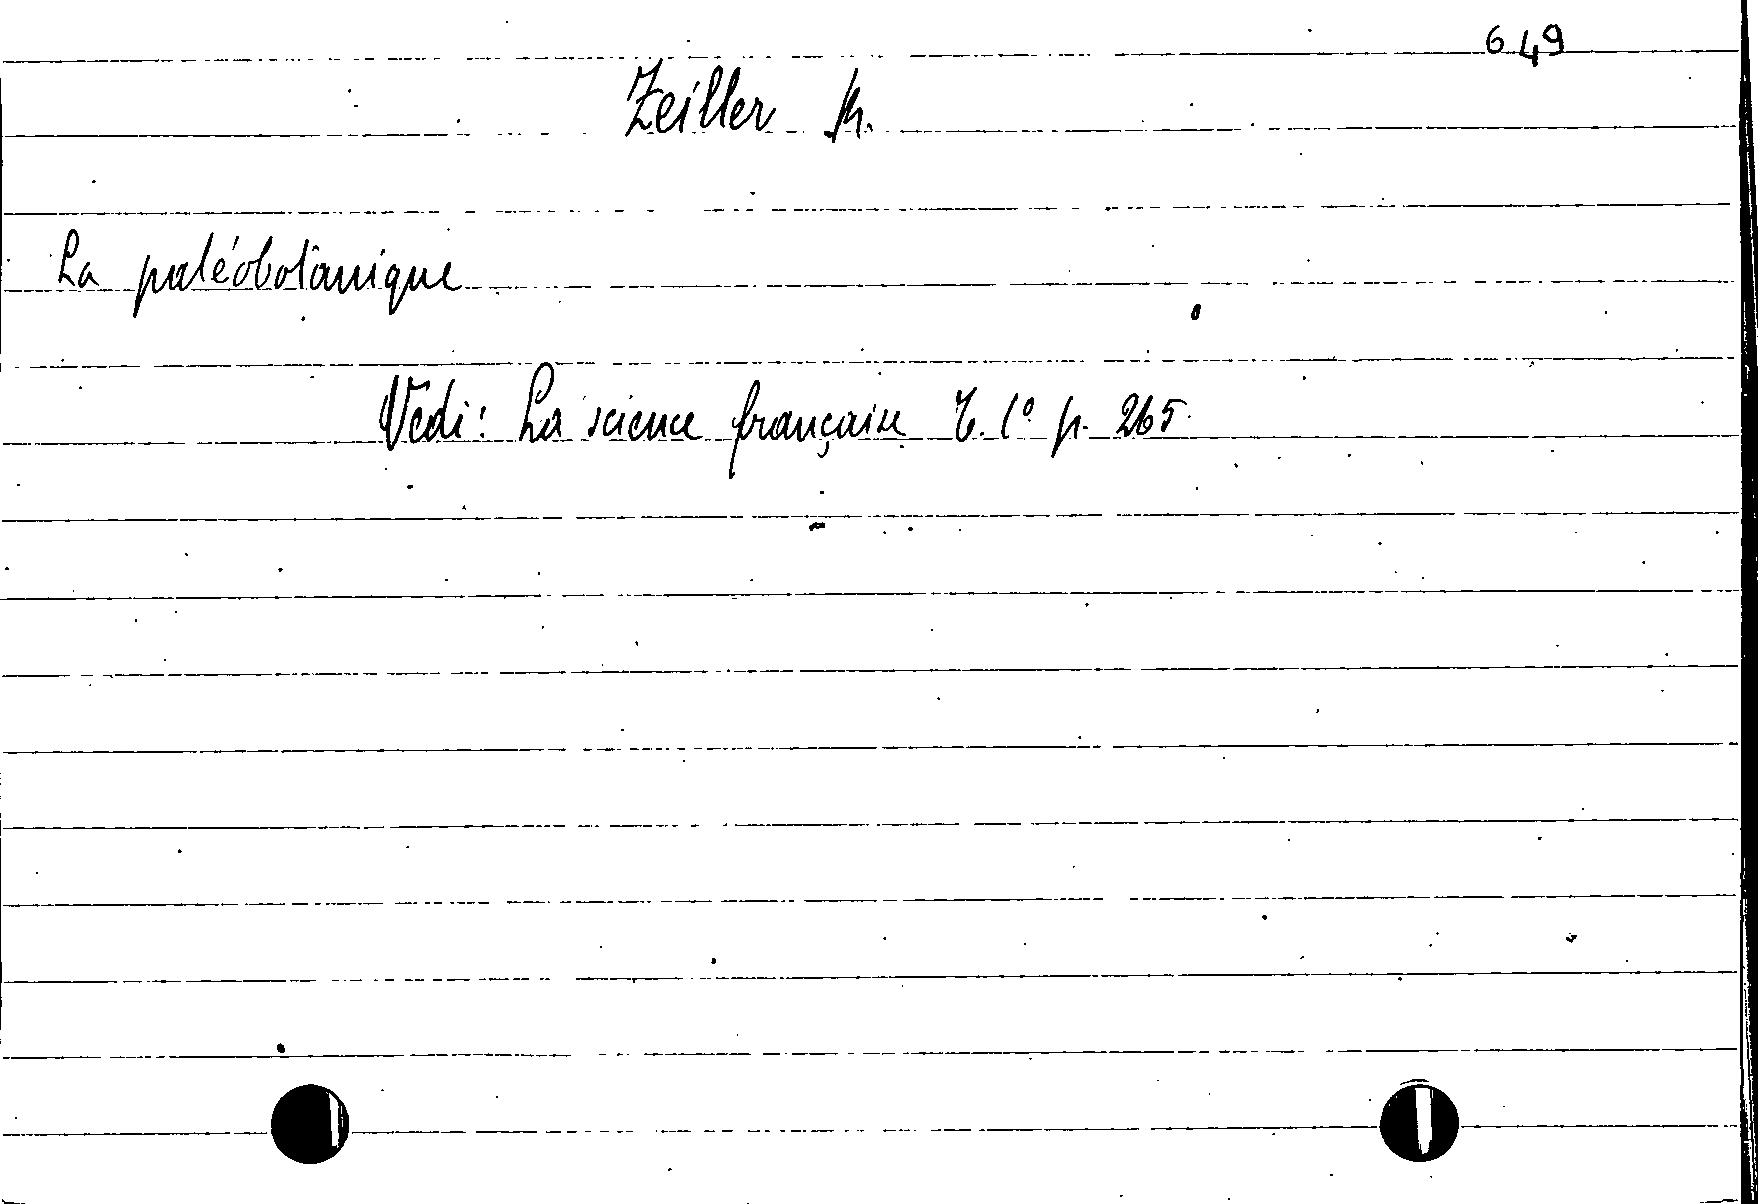 649
Zeiller M.
La paléobotanique
Vedi: La science française T. 1º p. 265